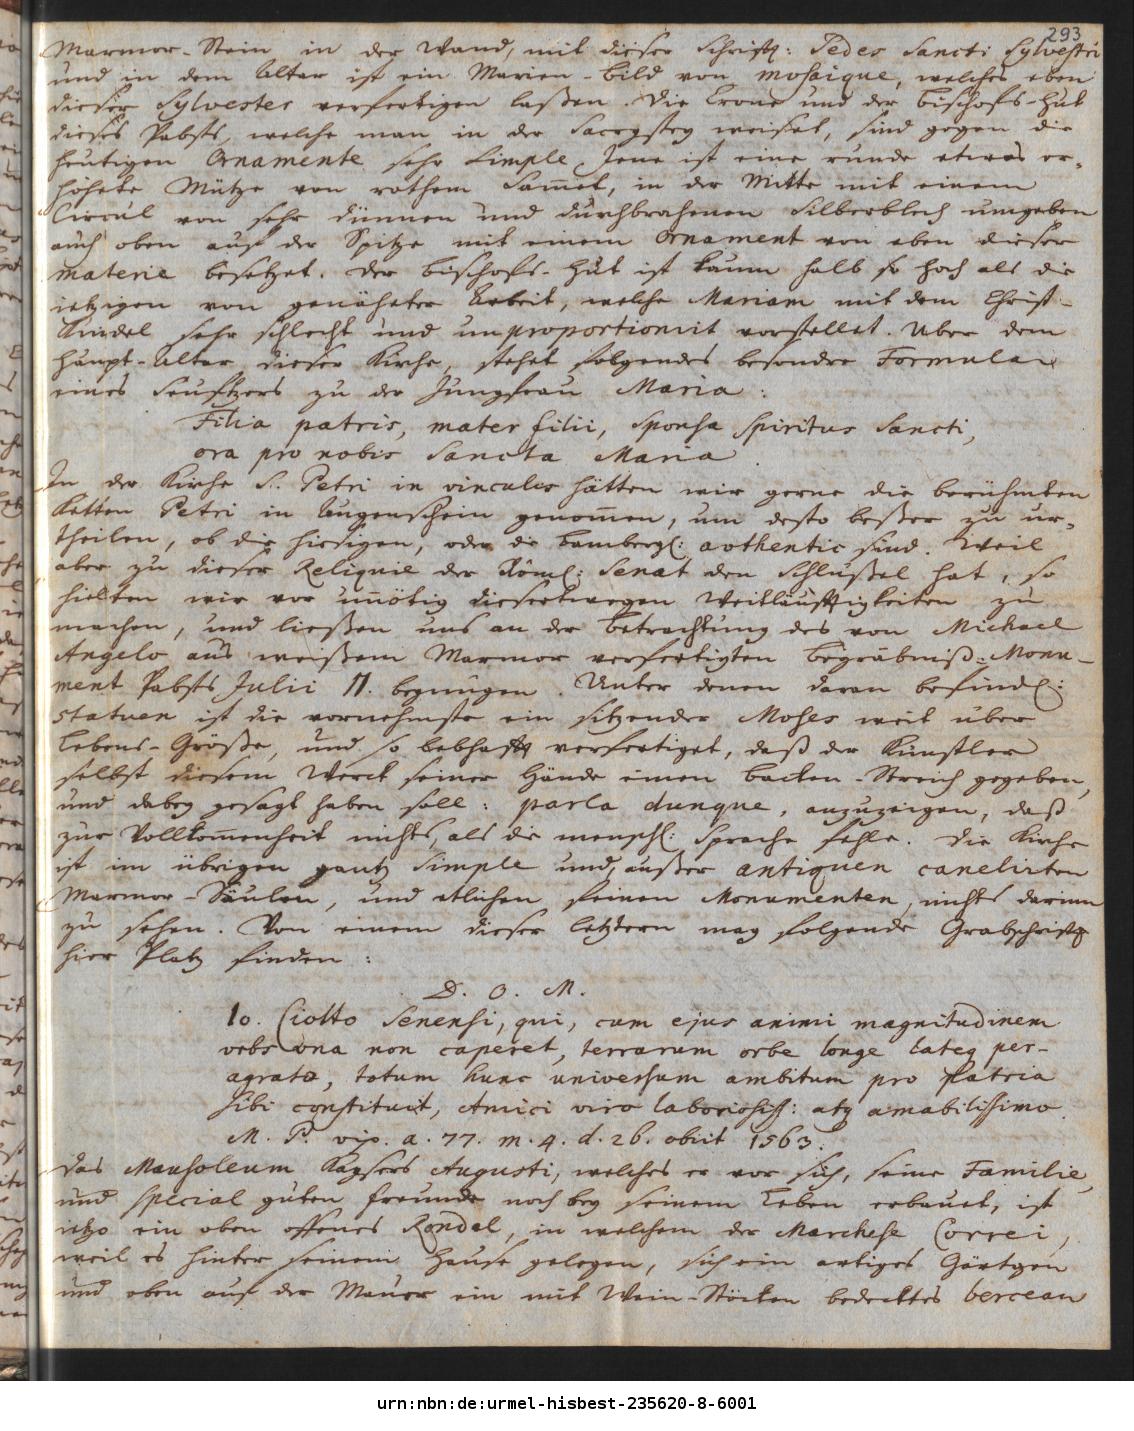 293
Marmor-Stein in der Wand, mit dieser Schrifft: Sedes Sancti Sylvestri
und in dem Altar ist ein Marien-Bild von mosaique, welches eben
dieser Sylvester verfertigen laßen. Die Crone und der Bischofs-Hut
dieses Pabsts, welche man in der Sacrystey weiset, sind gegen die
heutigen Ornamente sehr simple. Jene ist eine runde etwas er-
höhete Mütze von rothem Sam̅et, in der Mitte mit einem
Circul von sehr dünnen und durchbrochenen Silberblech umgeben
auch oben auf der Spitze mit einem Ornament von eben dieser
materie besetzet. Der Bischofs-Hut ist kaum halb so hoch als die
ietzigen von genäheter Arbeit, welche Mariam mit dem Christ-
Kindel sehr schlecht und unproportionirt vorstellet. Uber dem
Haupt-Altar dieser Kirche, stehet folgendes besondre Formular
eines Seufftzers zu der Jungfrau Maria:
Filia patris, mater filii, sponsa Spiritus Sancti,
ora pro nobis Sancta Maria.
In der Kirche S. Petri in vinculis hätten wir gerne die berühmten
Ketten Petri in Augenschein genom̅en, um desto beßer zu ur-
theilen, ob die hiesigen, oder die Bambergl: avthentic sind. Weil
aber zu dieser Reliquie der Röml: Senat den Schlüßel hat, so
hielten wir vor un̅ötig dieserwegen Weitläufftigkeiten zu
machen, und ließen uns an der Betrachtung des von Michael
Angelo aus weißem Marmor verfertigten Begräbniß-Monu-
ment Pabsts Julii II. begnügen. Unter denen daran befindl:
Statuen ist die vornehmste ein sitzender Moses weit über
Lebens-Größe, und so lebhafft verfertiget, daß der Künstler
selbst diesem Werck seiner Hände einen Backen-Streich gegeben,
und dabey gesagt haben soll: parla dunque, anzuzeigen, daß
zur Vollkom̅enheit nichts, als die menschl: Sprache fehle. Die Kirche
ist im übrigen gantz simple und, außer antiquen canelirten
Marmor-Säulen, und etlichen feinen Monumenten, nichts darinn
zu sehen. Von einem dieser letztern mag folgende Grabschrifft
hier Platz finden:
D. O. M.
Io. Ciolto Senensi, qui, cum ejus animi magnitudinem
vrbs vna non caperet, terrarum orbe longe lateq per-
agrato, totum hunc universum ambitum pro Patria
sibi constituit, Amici viro laboriosiss: atq amabilissimo
M. P. vix. a. 77. m. 4. d. 26. obiit 1563.
Das Mausoleum Kaysers Augusti, welches er vor sich, seine Familie,
und special guten Freunde noch bey seinem Leben erbauet, ist
ietzo ein oben offenes Rondel, in welchem der Marchese Correi,
weil es hinter seinem Hause gelegen, sich ein artiges Gärtgen
und oben auf der Mauer ein mit Wein-Stöcken bedecktes berceau
urn:nbn:de:urmel-hisbest-235620-8-6001